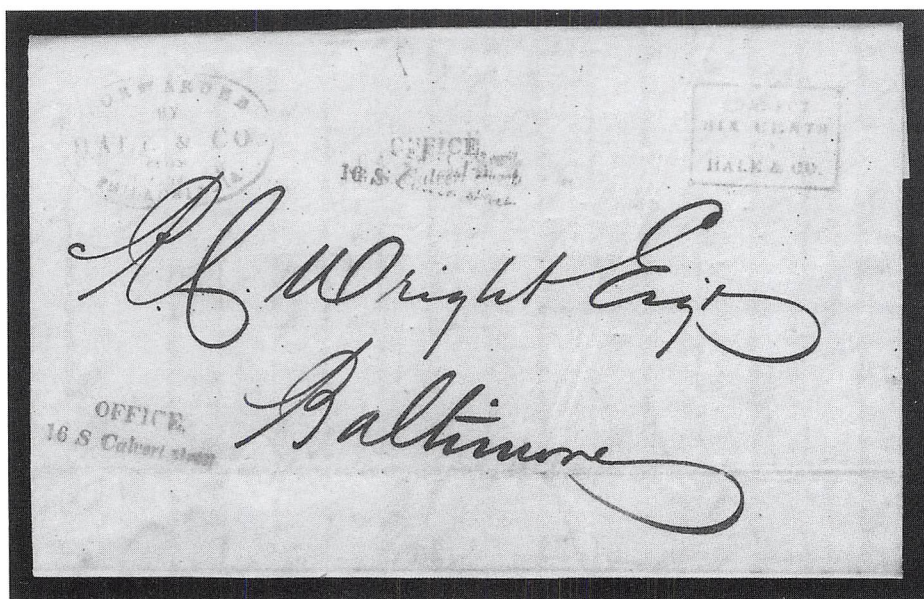 FORWARDED
BY
HALE & CO
FROM
PHILADELPHIA
OFFICE,
16 S Calvert street
COLLECT
SIX CENTS
HALE & CO.
R.C. Wright Esqr
Baltimore
OFFICE,
16 S Calvert street